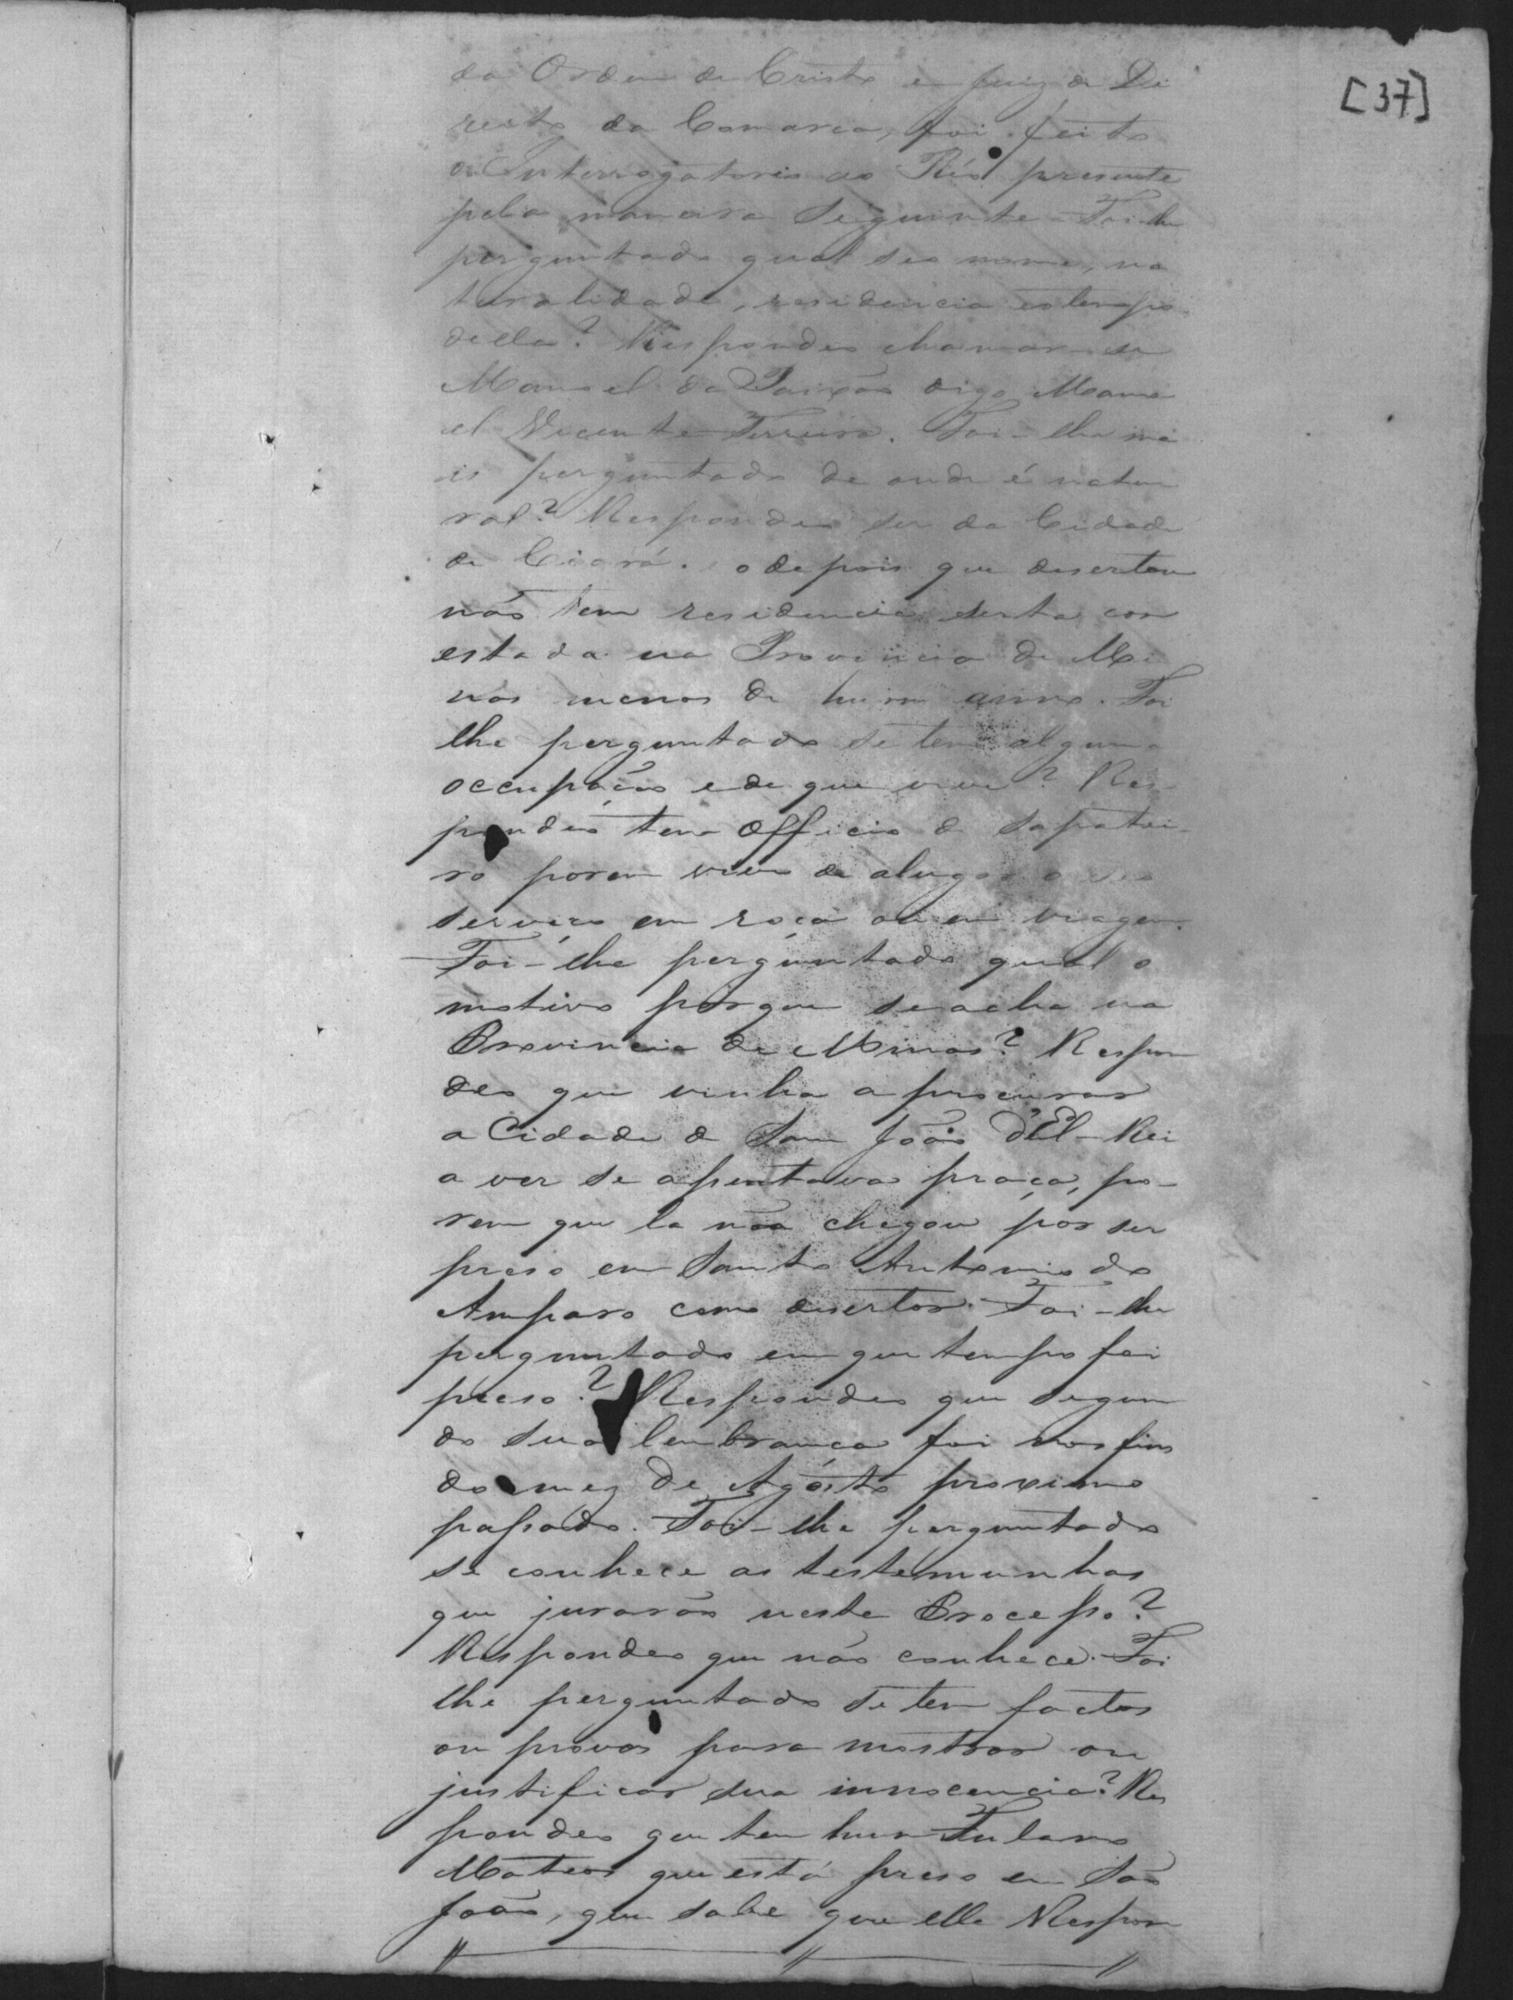 [37]
da Ordem de Cristo e Juiz de Di
reito da Comarca, foi feito
o Interrogatorio ao Réo presente
pela maneira seguinte. Foi-lhe
perguntado qual seo nome, na
turalidade, residencia e o tempo
della? Respondeo chamar-se
Manoel da Paixão digo Mano
el Vicente Ferreira. Foi-lhe ma
is perguntado de onde é natu
ral? Respondeo ser da Cidade
do Ceará. e depois que desertou
não tem residencia serta com
estada na Provincia de Mi
nas menos de hum anno. Foi
lhe perguntado se tem alguma
occupação e de que vive? Res-
pondeo tem Officio de sapatei-
ro porem vive de alugar o seo
serviço em roça ou em viagem.
Foi-lhe perguntado qual o
motivo porque se acha na
Provincia de Minas? Respon
deo que vinha a procurar
a Cidade de Sam João d'El-Rei
a ver se apentava praça, po-
rem que la não chegou por ser
preso em Santo Antonio do
Amparo como desertor. Foi-lhe
perguntado em que tempo foi
preso? Respondeo que segun
do sua lembrança foi nos fins
do mez de Agosto proximo
passado. Foi-lhe perguntado
se conhece as testemunhas
que jurarão neste Processo?
Respondeo que não conhece. Foi
lhe perguntado se tem factos
ou provas para mostrar ou
justificar sua innocencia? Res
pondeo que tem hum Fulano
Mateos que está preso em São
João, que sabe que elle Respon